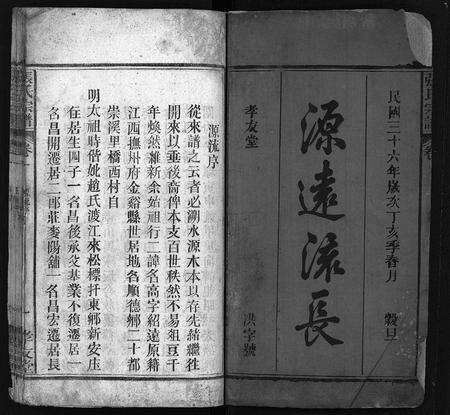 民國三十六年歲次丁亥季春月 穀旦
源遠流長
孝友堂
洪字號
源流序
從來譜之云者必溯水源木本以存先緒繼往
開來以垂後裔俾本支百世秩然不易祖亘千
年煥然維新余始祖行二諱名高字紹遠原籍
江西撫州府金谿縣世居地名順德鄉二十都
崇溪里橋西村自
明太祖時偕妣趙氏渡江來松標扦東鄉新安庄
在居生四子一名昌後承受基業不復遷居一
名昌開遷居二郎莊麥陽舖一名昌宏遷居長